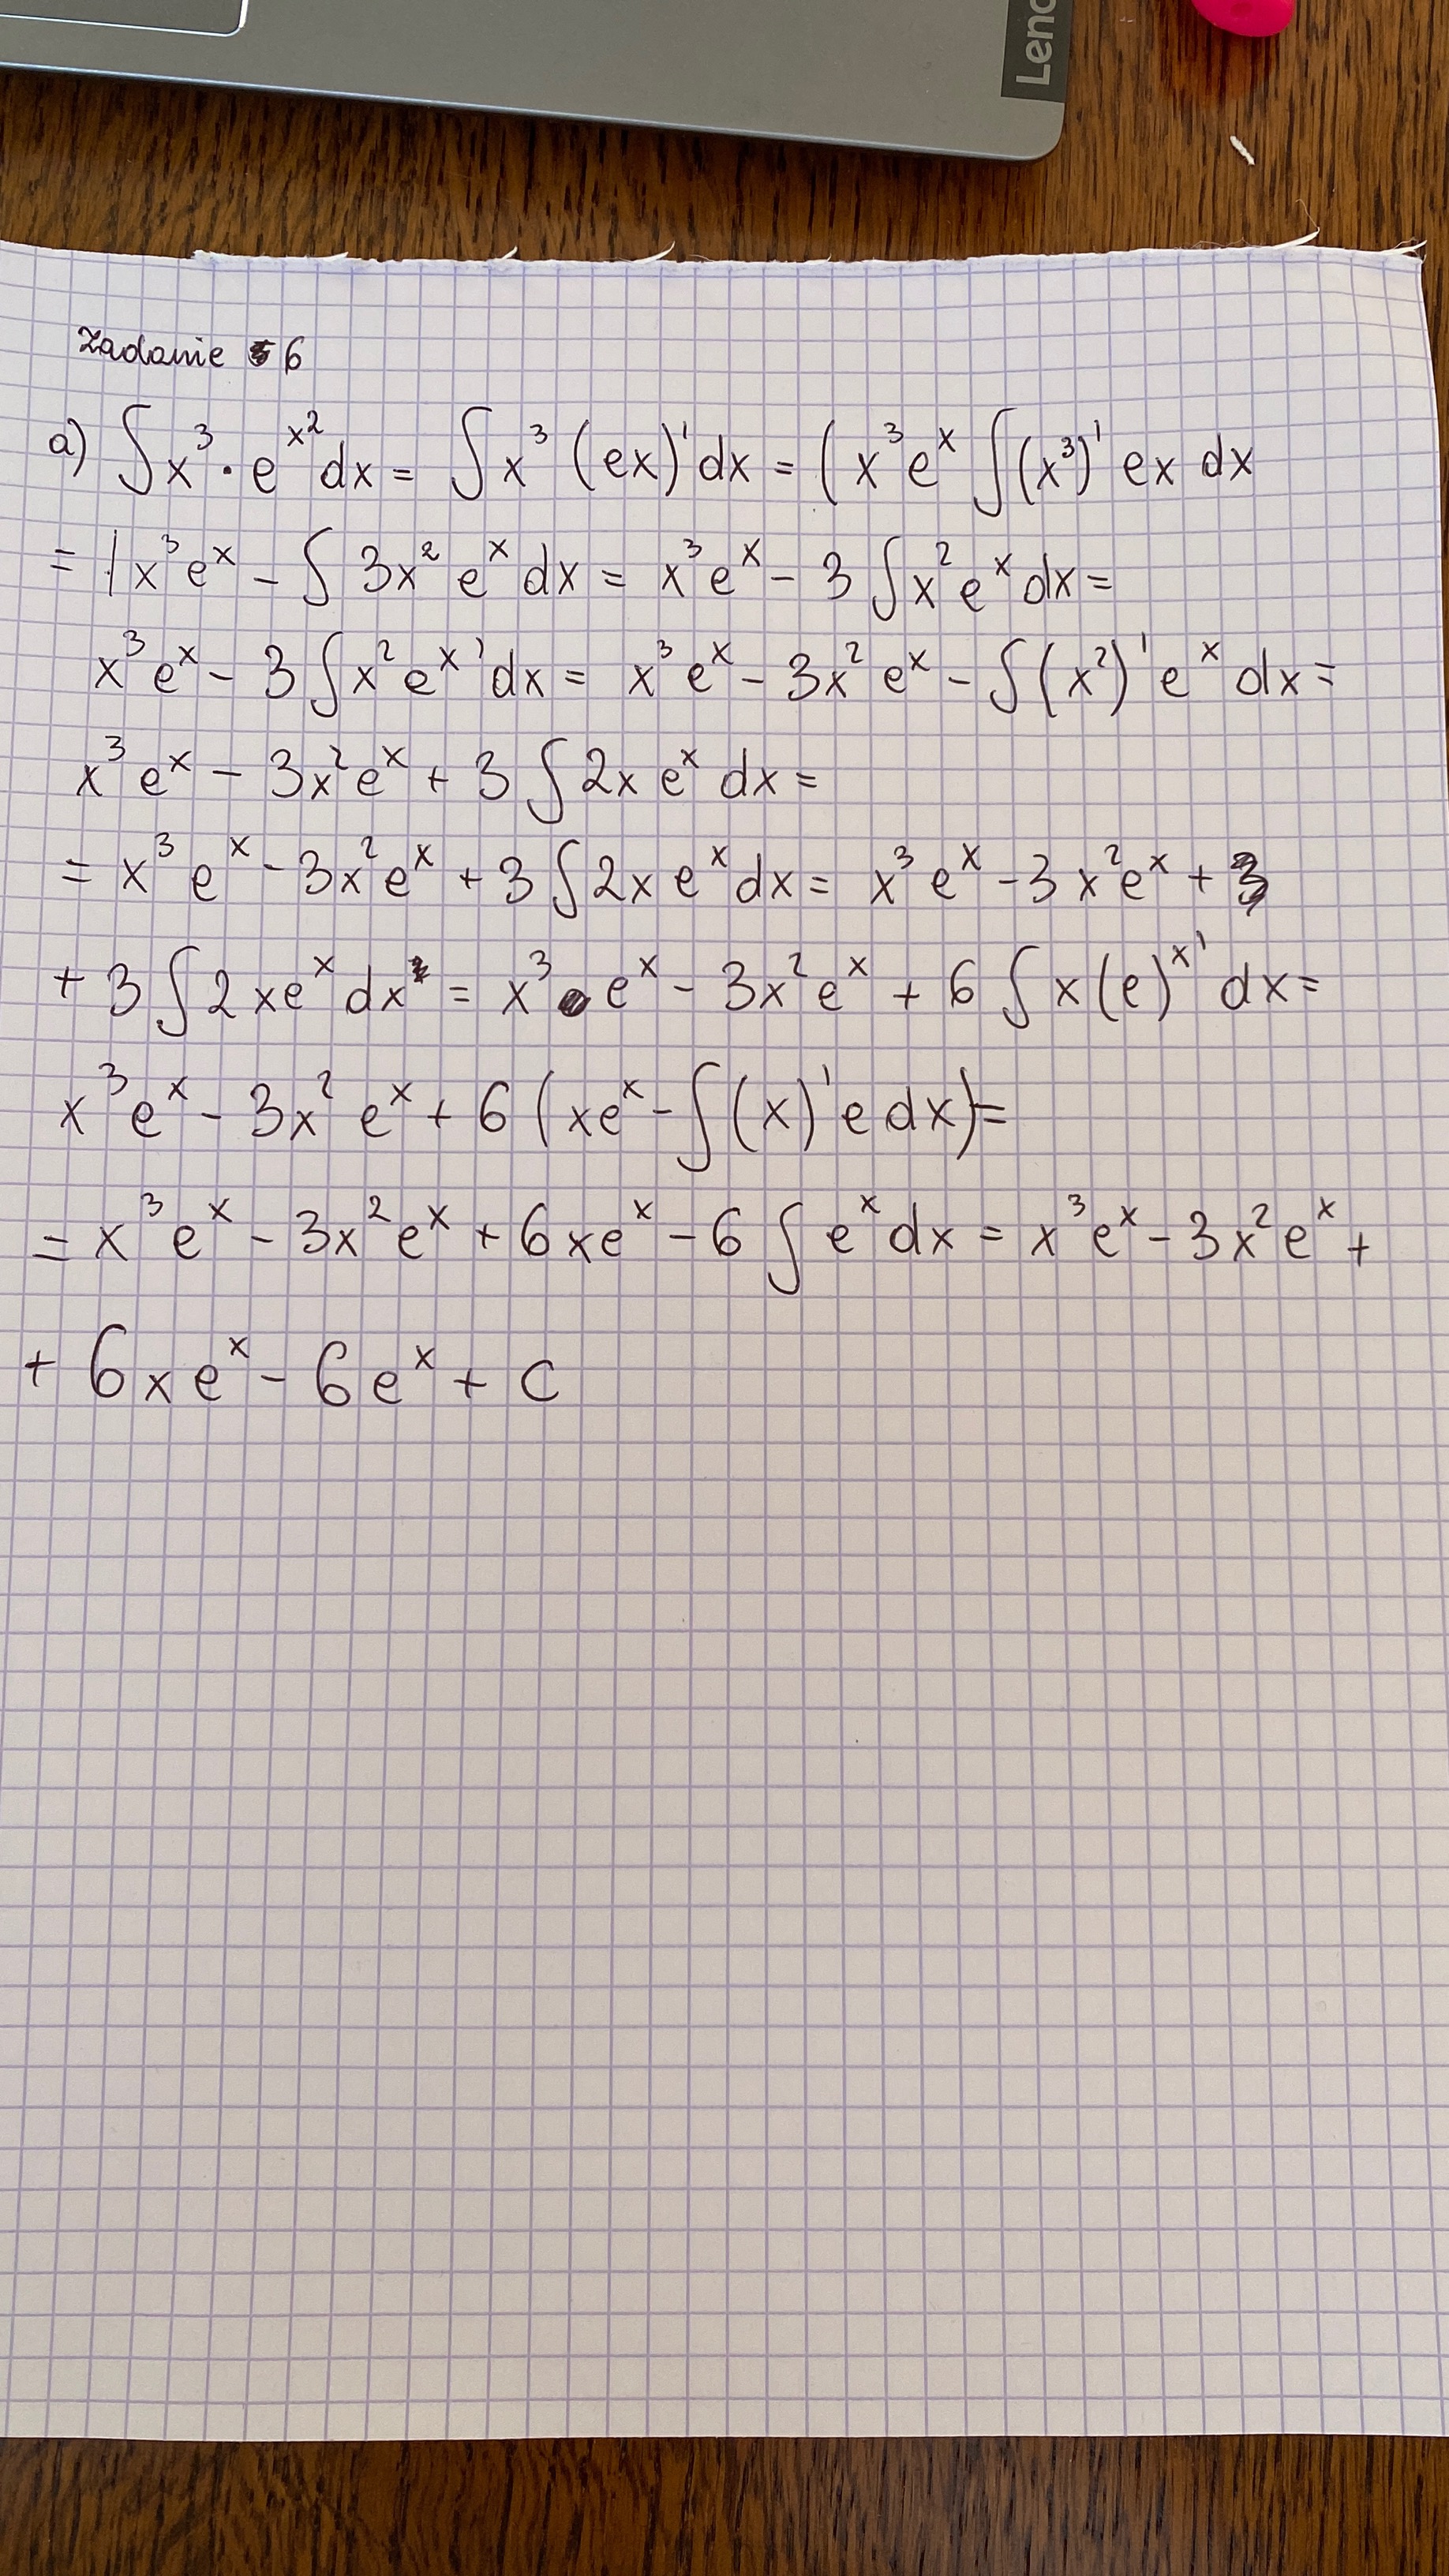 Leno
Zadanie 6
a) ∫x³·e^x² dx = ∫x³ (ex)' dx = (x³e^x ∫(x³)' ex dx
= |x³e^x - ∫ 3x² e^x dx = x³e^x - 3 ∫x² e^x dx =
x³e^x - 3 ∫x² e^x' dx = x³e^x - 3x² e^x - ∫(x²)' e^x dx =
x³e^x - 3x²e^x + 3 ∫2x e^x dx =
= x³ e^x - 3x²e^x + 3 ∫2x e^x dx = x³ e^x - 3x²e^x +
+ 3 ∫2xe^x dx = x³ e^x - 3x² e^x + 6 ∫x(e)^x' dx =
x³e^x - 3x² e^x + 6 (xe^x - ∫(x)' e dx) =
= x³ e^x - 3x² e^x + 6xe^x - 6 ∫ e^x dx = x³e^x - 3x²e^x +
+ 6xe^x - 6e^x + C